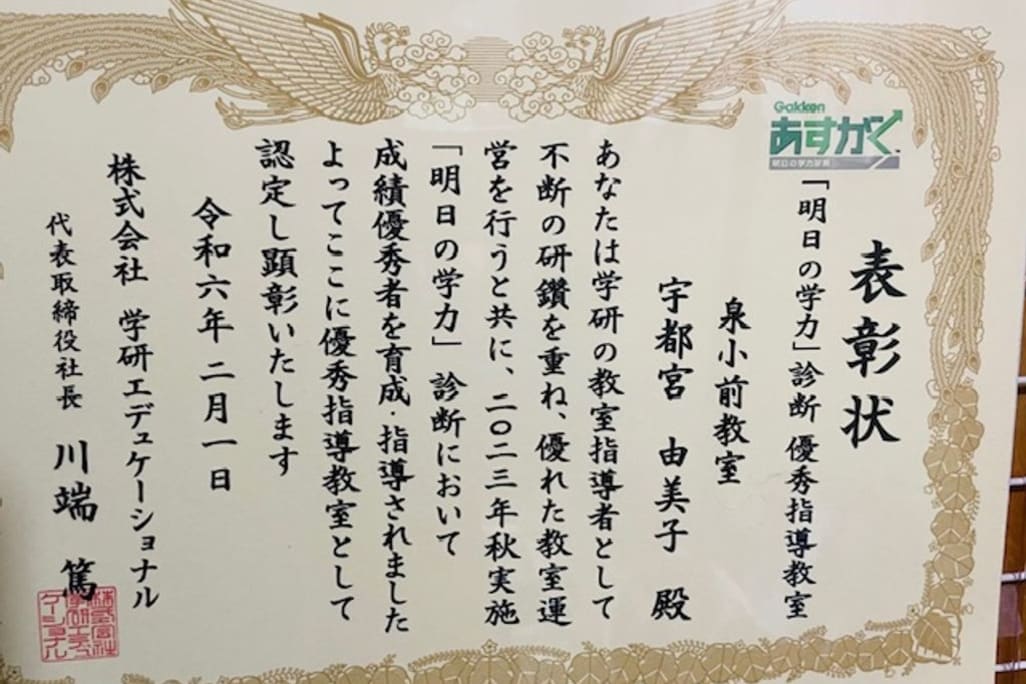 表彰状
Gakken
あすがく
明日の学力診断
「明日の学力」診断 優秀指導教室
泉小前教室
宇都宮 由美子 殿
あなたは学研の教室指導者として
不断の研鑽を重ね、優れた教室運
営を行うと共に、二〇二三年秋実施
「明日の学力」診断において
成績優秀者を育成・指導されました
よってここに優秀指導教室として
認定し顕彰いたします
令和六年 二月一日
株式会社 学研エデュケーショナル
代表取締役社長 川端 篤
株式会社
学研エデュ
ケーショナル